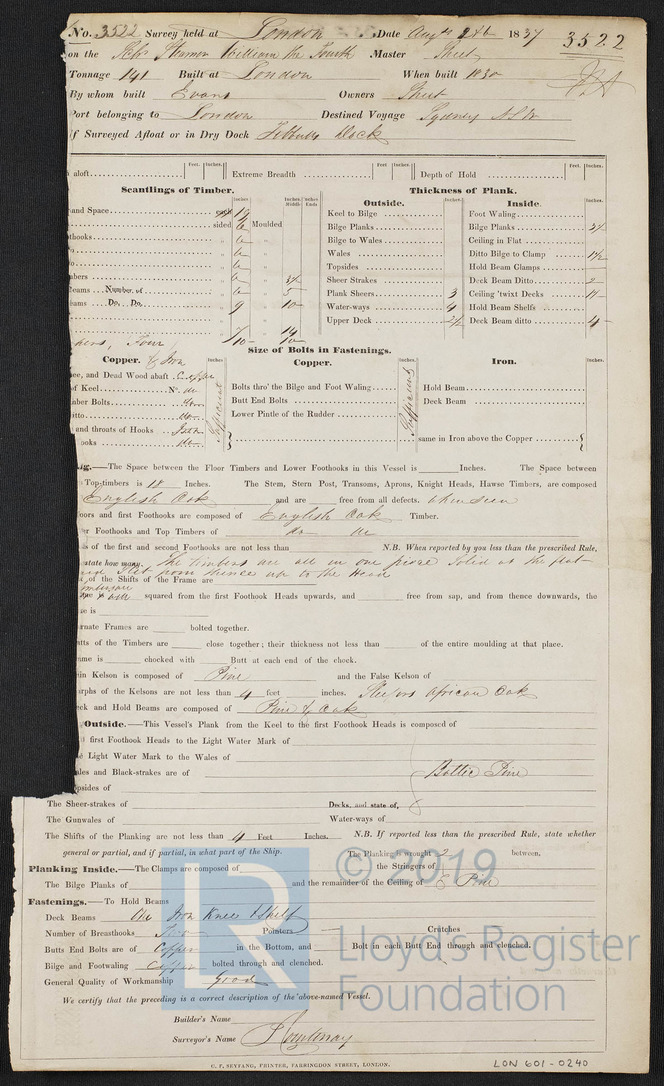 No. 3522 Survey held at London Date Augt 1837 3522
on the Steamer William the Fourth Master Street
Tonnage 141 Built at London When built 1830
By whom built Evans Owners Street
Port belonging to London Destined Voyage Sydney N.S.W
if Surveyed Afloat or in Dry Dock Dock
aloft Feet. Inches. Extreme Breadth Feet. Inches. Depth of Hold Feet. Inches.
Scantlings of Timber. Thickness of Plank.
Inches Inches Middle Inches Ends Outside. Inches. Inside. Inches.
and Space 19 Keel to Bilge Foot Waling
sided 6 Moulded Bilge Planks Bilge Planks 3½
thooks 6 Bilge to Wales Ceiling in Flat
6 Wales Ditto Bilge to Clamp 1½
6 Topsides Hold Beam Clamps
mbers 6 3½ Sheer Strakes Deck Beam Ditto 2
Beams Number of 6 5 Plank Sheers 3 Ceiling 'twixt Decks
eams Do. Do. 9 10 Water-ways 4 Hold Beam Shelfs
Upper Deck 2½ Deck Beam ditto 4
7 14
Four 10 10
Size of Bolts in Fastenings.
Copper. & Iron Inches Copper. Inches. Iron. Inches.
ee, and Dead Wood abaft Copper
of Keel No. do Bolts thro' the Bilge and Foot Waling Hold Beam
mber Bolts do Butt End Bolts Deck Beam
itto do Lower Pintle of the Rudder
and throats of Hooks Iron
ooks do same in Iron above the Copper
Sufficient Sufficient
—The Space between the Floor Timbers and Lower Foothooks in this Vessel is Inches. The Space between
Top-timbers is 18 Inches. The Stem, Stern Post, Transoms, Aprons, Knight Heads, Hawse Timbers, are composed
English Oak and are free from all defects. when seen
oors and first Foothooks are composed of English Oak Timber.
er Foothooks and Top Timbers of do do
ts of the first and second Foothooks are not less than N.B. When reported by you less than the prescribed Rule,
state how many. The Timbers are all in one piece Solid at the flat
and Slit from thence up to the Head
of the Shifts of the Frame are
squared from the first Foothook Heads upwards, and free from sap, and from thence downwards, the
ne is
rnate Frames are bolted together.
utts of the Timbers are close together; their thickness not less than of the entire moulding at that place.
ame is chocked with Butt at each end of the chock.
in Kelson is composed of Pine and the False Kelson of
arphs of the Kelsons are not less than 4 feet inches. Sleepers African Oak
eck and Hold Beams are composed of Pine & Oak
Outside.—This Vessel's Plank from the Keel to the first Foothook Heads is composed of
first Foothook Heads to the Light Water Mark of
e Light Water Mark to the Wales of
ales and Black-strakes are of Baltic Pine
opsides of
The Sheer-strakes of Decks, and state of,
The Gunwales of Water-ways of
The Shifts of the Planking are not less than 4 Feet Inches. N.B. If reported less than the prescribed Rule, state whether
general or partial, and if partial, in what part of the Ship. The Planking is wrought 2 between.
Planking Inside.—The Clamps are composed of the Stringers of
The Bilge Planks of and the remainder of the Ceiling of Pine
Fastenings.—To Hold Beams
Deck Beams Iron Knees & Shelf
Number of Breasthooks Pointers Crutches
Butts End Bolts are of Copper in the Bottom, and Bolt in each Butt End through and clenched.
Bilge and Footwaling Copper bolted through and clenched.
General Quality of Workmanship Good
We certify that the preceding is a correct description of the above-named Vessel.
Builder's Name
Surveyor's Name Courtenay
C. F. SEYFANG, PRINTER, FARRINGDON STREET, LONDON.
LON 601-0240
LR © 2019
Lloyd's Register
Foundation